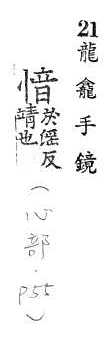 21龍龕手鏡
愔於滛反靖也(心部.P55)